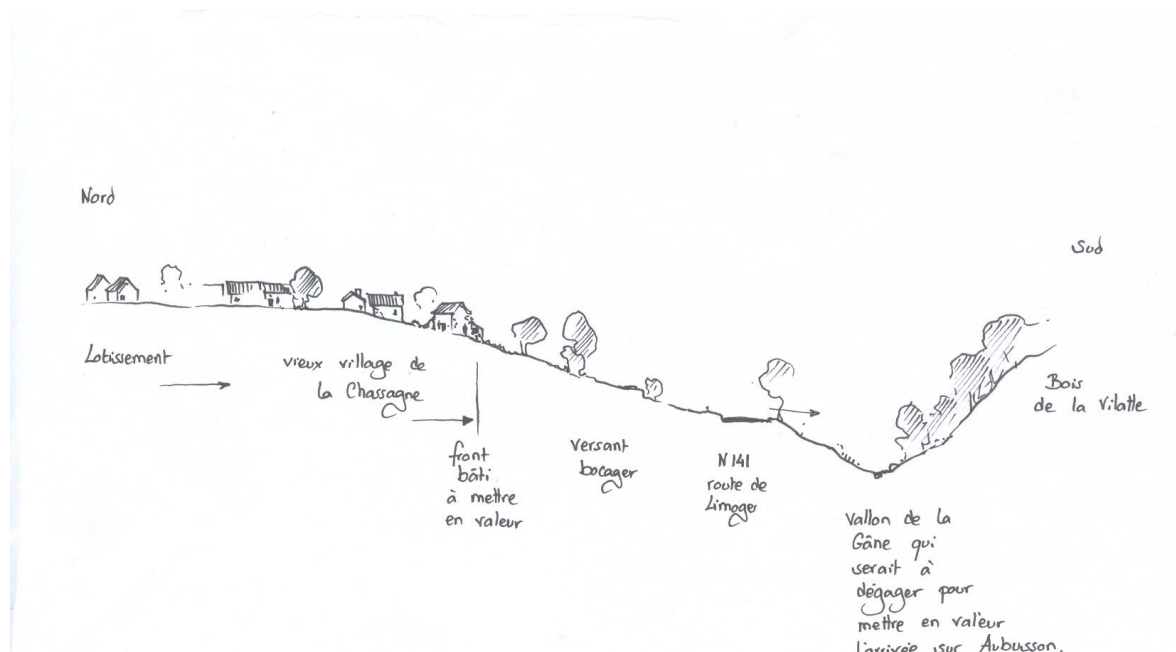 Nord
Sud
Lotissement
vieux village de
la Chassagne
front
bâti
à mettre
en valeur
versant
bocager
N 141
route de
Limoges
Bois
de la Vilatte
Vallon de la
Gâne qui
serait à
dégager pour
mettre en valeur
l'arrivée sur Aubusson.